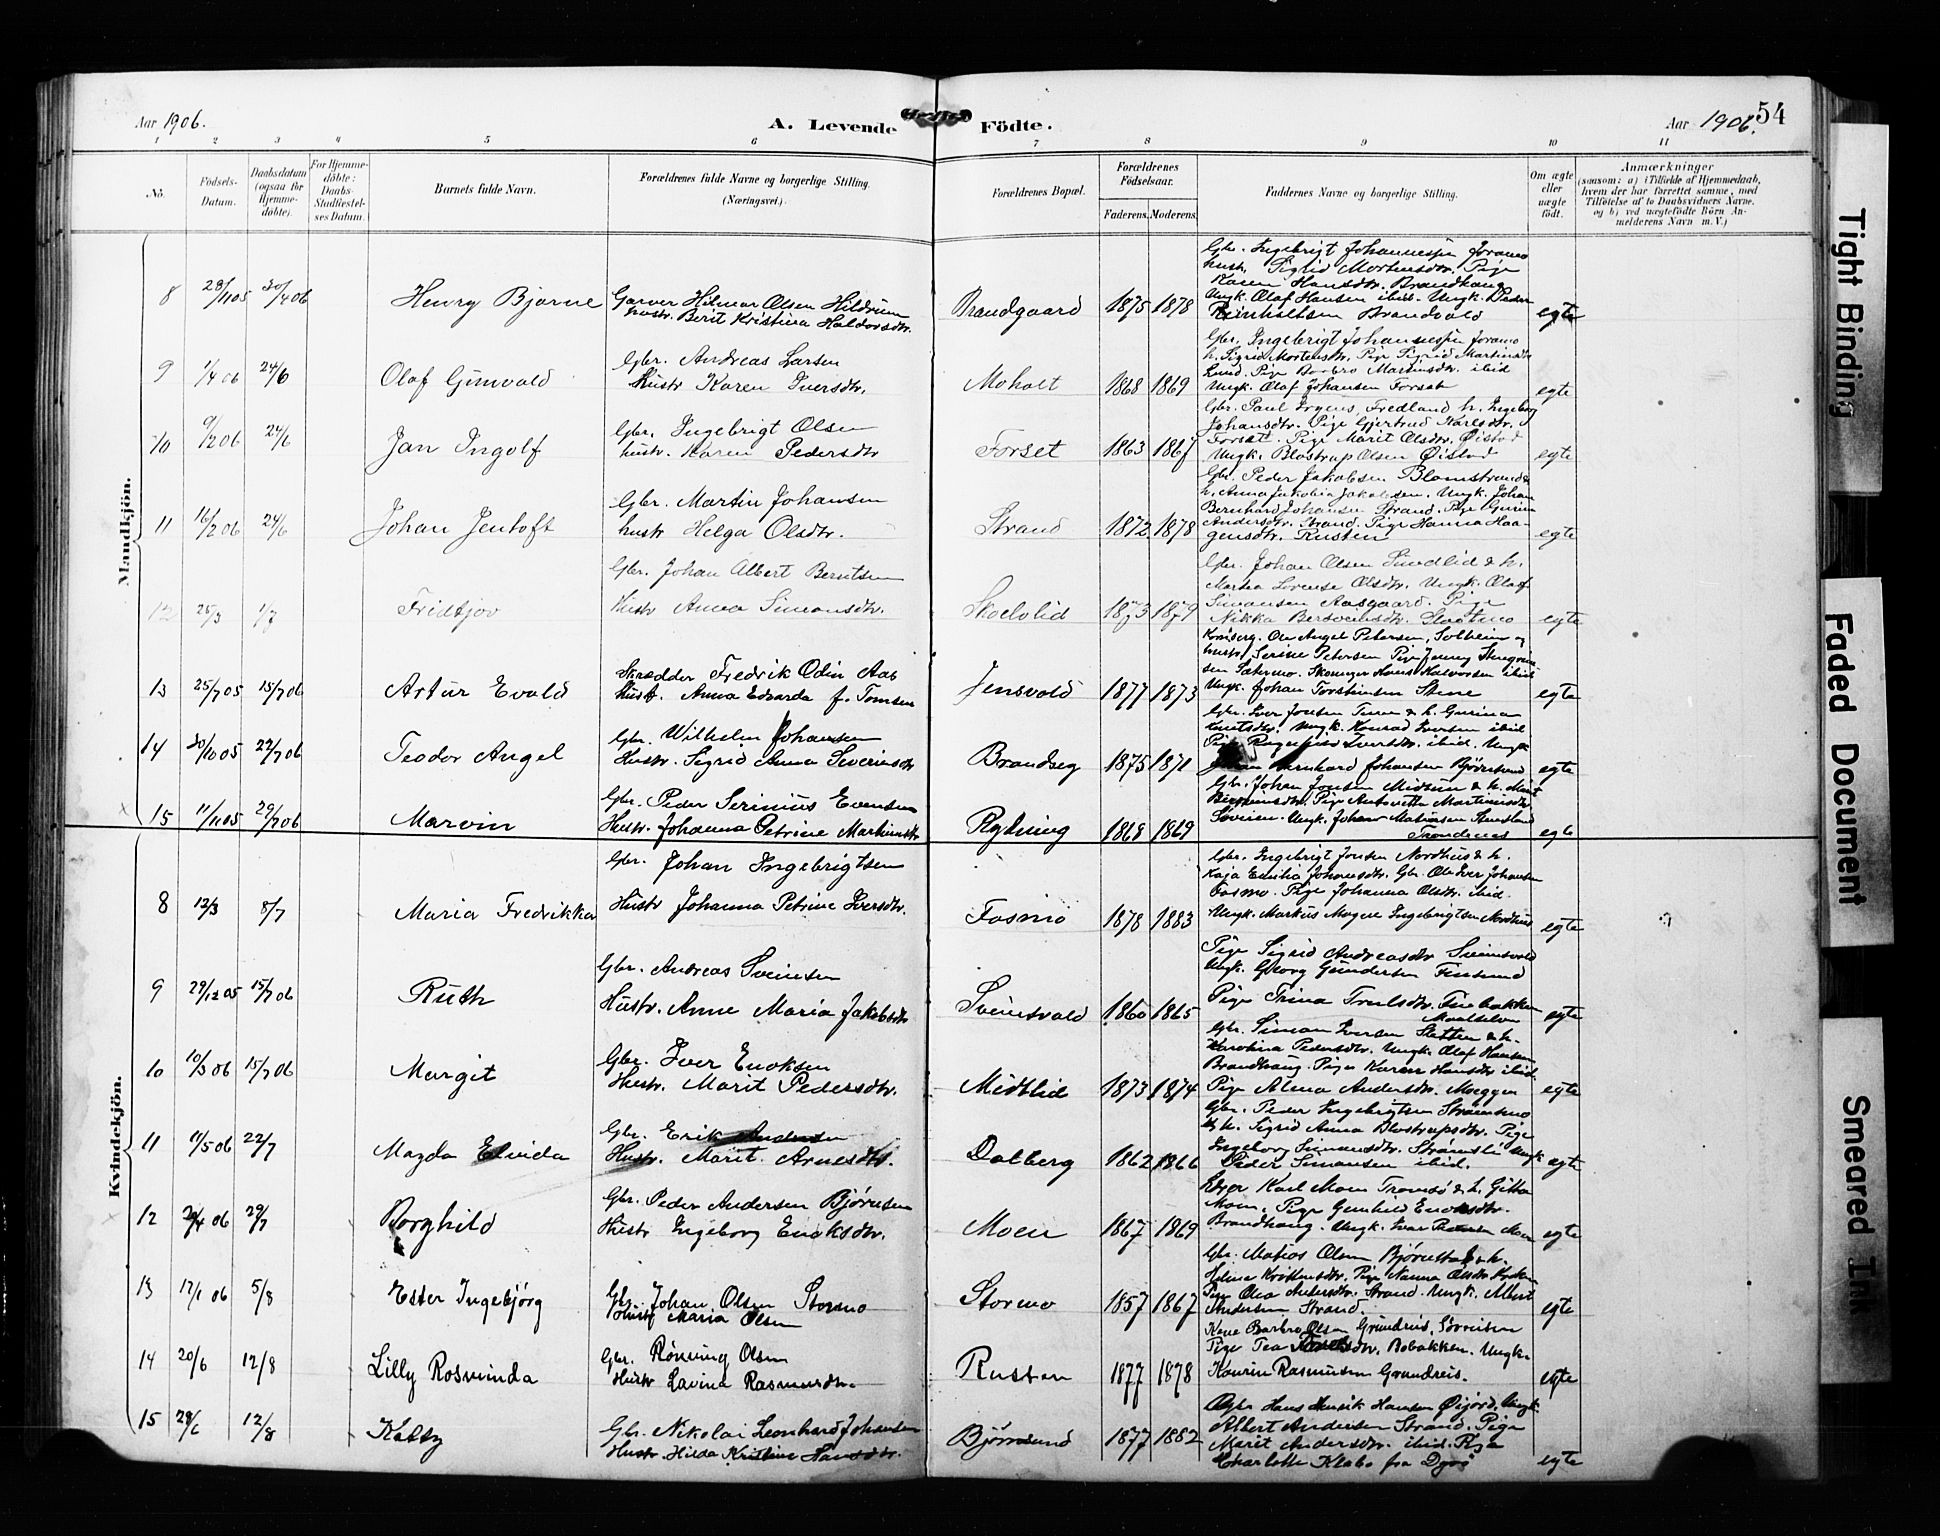 Aar 1906.
A. Levende Födte.
Aar 1906.
54
1 2 3 4 5 6 7 8 9 10 11
No.
Födsels-Datum.
Daabsdatum (ogsaa for Hjemme-döbte).
For Hjemme-döbte: Daabs-Stadfæstel-ses Datum.
Barnets fulde Navn.
Forældrenes fulde Navne og borgerlige Stilling. (Næringsvei.)
Forældrenes Bopæl.
Forældrenes Födselsaar.
Faderens. Moderens.
Faddernes Navne og borgerlige Stilling.
Om ægte eller uægte födt.
Anmærkninger
(saasom: a) i Tilfælde af Hjemmedaab, hvem der har forrettet samme, med Tilföielse af to Daabsvidners Navne, og b) ved uægtefödte Börn An-melderens Navn m. V.)
Mandkjön.
8 28/11 05 30/4 06 Henry Bjarne
Garver Hilmar Olsen Hildrum
hustr. Berit Kristina Haldorsdtr.
Brandgaard 1875 1878
Gbr. Ingebrigt Johannessen Foramo
hustr. Sigrid Mortensdtr. Pige
Karen Hansdtr. Brandhaug
Ungk. Olaf Hansen ibid. Ungk. Peder
Reinholtsen Brandvold
egte
9 1/4 06 24/6 Olaf Gunvald
Gbr. Andreas Larsen
Hustr Karen Iversdtr.
Moholt 1868 1869
Gbr. Ingebrigt Johannessen Foramo
h. Sigrid Mortensdtr. Pige Sigrid Martinsdtr
Lund. Pige Barbro Martinsdtr. ibid
Ungk. Olaf Johansen Forset
egte
10 9/2 06 24/6 Jan Ingolf
Gbr. Ingebrigt Olsen
hustr. Karen Pedersdtr
Forset 1863 1867
Gbr. Paul Irgens Fredland h. Ingeborg
Johansdtr. Pige Gjertrud Karlsdtr.
Forset. Pige Marit Olsdtr. Øistad
Ungk. Blostrup Olsen Øistad
egte
11 16/2 06 24/6 Johan Jentoft
Gbr. Martin Johansen
hustr Helga Olsdtr.
Strand 1872 1878
Gbr. Peder Jakobsen Blomstrand &
h. Anna Jakobia Jakobsen. Ungk. Johan
Bernhard Johansen Strand. Pige Gurine
Andersdtr. Strand. Pige Hanna Haa-
gensdtr. Rusten
egte
12 25/3 1/7 Fridtjov
Gbr. Johan Albert Berntsen
Hustr Anna Simonsdtr.
Skoelvlid 1873 1879
Gbr. Johan Olsen Sundlid & h.
Martha Lorense Olsdtr. Ungk. Olaf
Simonsen Aasgaard. Pige
Nikka Bersveinsdtr. Slaatmo
egte
13 25/7 05 15/7 06 Artur Evald
Skrædder Fredrik Odin Aas
Hustr. Anna Edvarda f. Tomsen
Jensvold 1877 1873
Ole Angel Petersen, Solheim og
hustr Serine Petersen Pige Jenny
Skomager Hans Halvorsen ibid
Ungk. Johan Torstensen Stene
egte
14 30/10 05 22/7 06 Teodor Angel
Gbr. Wilhelm Johansen
Hustr. Sigrid Anna Severinsdtr
Brandseg 1875 1871
Gbr. Iver Jonsen Tunn & h. Gurina
Knutsdtr. Ungk. Konrad Iversen ibid
Pige Iversdtr. ibid. Ungk
Johan Bernhard Johansen Bjørnsund
egte
15 11/11 05 29/7 06 Marvin
Gbr. Peder Serinius Evensen
Hustr. Johanna Petrine Martinusdtr
Rydning 1868 1869
Gbr. Johan Jonsen Midtun & h. Marit
Pige Antonette Martinusdtr.
Søreisen. Ungk. Johan Matiasen
Trondenes
egte
Kvindekjön.
8 12/3 8/7 Maria Fredrikka
Gbr. Johan Ingebrigtsen
Hustr Johanna Petrine Iversdtr.
Fosmo 1878 1883
Gbr. Ingebrigt Jonsen Nordhus & h.
Kaja Emilia Johansdtr. Gbr. Ole Iver Johansen
Fosmo. Pige Johanna Olsdtr. ibid.
Ungk. Markus Magne Ingebrigtsen Nordhus
egte
9 29/12 05 15/7 06 Ruth
Gbr. Andreas Sveinsen
Hustr. Anne Maria Jakobsdtr
Sveinsvold 1860 1865
Pige Sigrid Andreasdtr Sveinsvold
Ungk. Georg Gundersen Finsund
Pige Trina Trulsdtr. Finbakken
Maalselven
egte
10 10/3 06 15/7 06 Margit
Gbr. Iver Enoksen
Hustr. Marit Pedersdtr.
Midtlid 1873 1874
Gbr. Simon Iversen Sletten & h.
Karolina Pedersdtr. Ungk. Olaf Hansen
Brandhaug. Pige Karen Hansdtr ibid.
Pige Alma Andersdtr. Moeggen
egte
11 11/5 06 22/7 Magda Elvida
Gbr. Erik Andersen
Hustr. Marit Arnesdtr.
Dalberg 1862 1866
Gbr. Peder Ingebrigtsen Strømsmo
& h. Sigrid Anna Blostrupsdtr. Pige
Ingeborg Simonsdtr. Strømsli Ungk
Peder Simonsen ibid.
egte
12 29/4 06 29/7 Borghild
Gbr. Peder Andersen Bjørnsen
Hustr Ingeborg Enoksdtr.
Moen 1867 1869
Karl Moen Tromsø & h. Gitta
Moen. Pige Gunhild Enoksdtr.
Brandhaug. Ungk. Ivar Pedersen Moen
egte
13 17/1 06 5/8 Ester Ingebjørg
Gbr. Johan Olsen Stormo
Hustr Maria Olsen
Stormo 1857 1867
Gbr. Matias Olsen Bjørnstad & h.
Heline Kristensdtr. Pige Nanna Olsdtr
Pige Olea Andersdtr. Strand. Ungk. Albert
Andersen Strand.
egte
14 20/6 12/8 Lilly Rosvinda
Gbr. Rønning Olsen
Hustr Lavina Rasmusdtr.
Rusten 1877 1878
Kone Barbro Olsen Grundreis, Sørreisen
Pige Tea Bobakken. Ungk.
Kaurin Rasmussen Grundreis.
egte
15 28/6 12/8 Kathy
Gbr. Nikolai Leonhard Johansen
Hustr. Hilda Kristine Hansdtr.
Bjørnsund 1877 1882
Gbr Hans Henrik Hansen Øijord, Ungk.
Albert Andersen Strand. Pige
Marit Andersdtr. ibid. Pige
Charlotte Klabo fra Dyrø
egte
Tight Binding
Faded Document
Smeared Ink